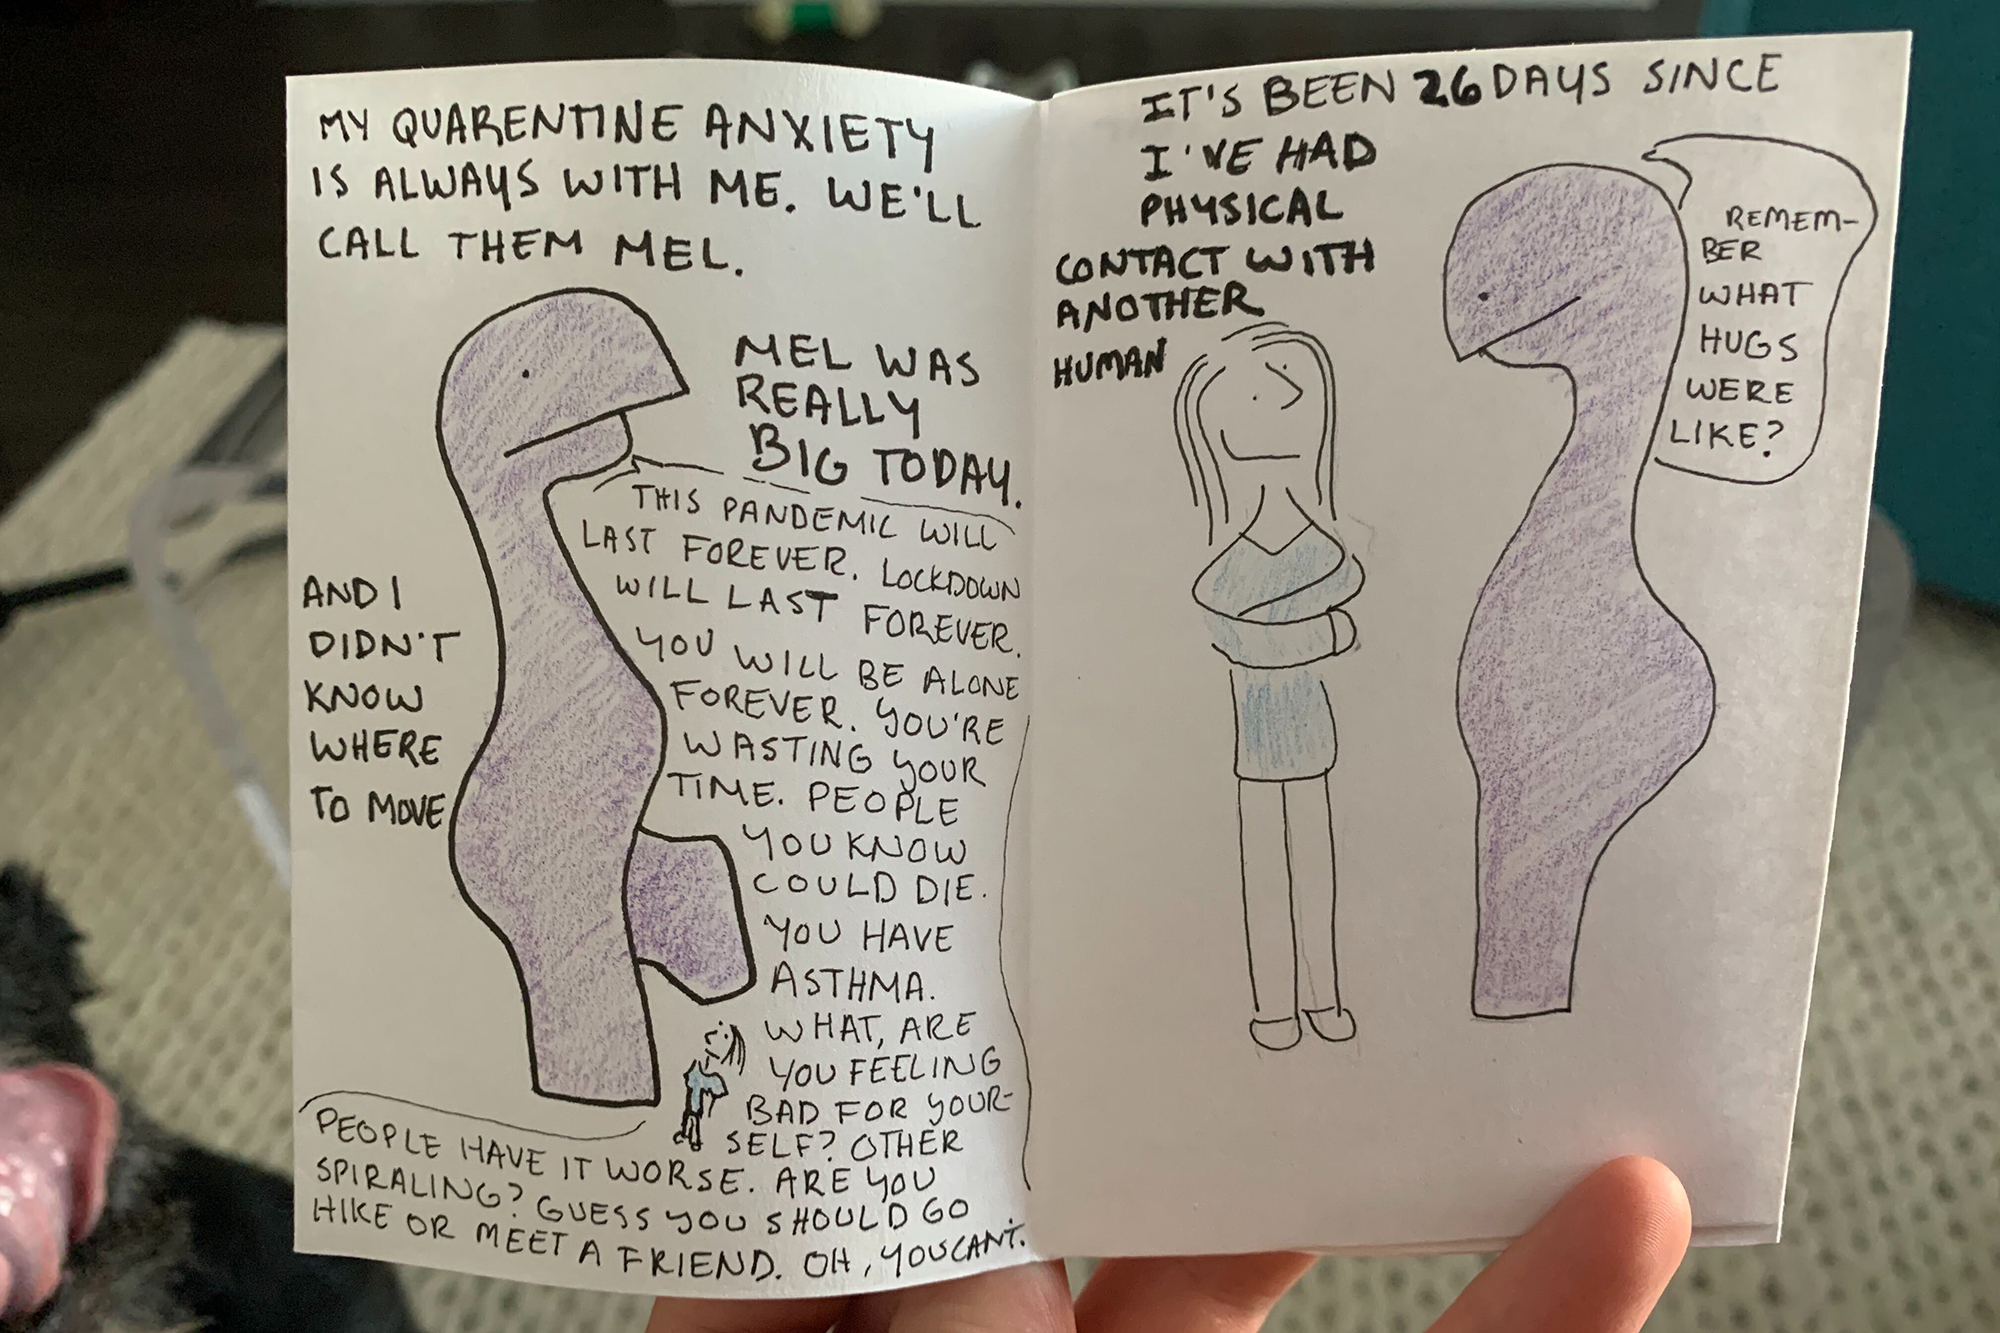 MY QUARENTINE ANXIETY
IS ALWAYS WITH ME. WE'LL
CALL THEM MEL.
MEL WAS
REALLY
BIG TODAY.
AND I
DIDN'T
KNOW
WHERE
TO MOVE
THIS PANDEMIC WILL
LAST FOREVER. LOCKDOWN
WILL LAST FOREVER.
YOU WILL BE ALONE
FOREVER. YOU'RE
WASTING YOUR
TIME. PEOPLE
YOU KNOW
COULD DIE.
YOU HAVE
ASTHMA.
WHAT, ARE
YOU FEELING
BAD FOR YOUR-
SELF? OTHER
PEOPLE HAVE IT WORSE. ARE YOU
SPIRALING? GUESS YOU SHOULD GO
HIKE OR MEET A FRIEND. OH, YOU CAN'T.
IT'S BEEN 26 DAYS SINCE
I'VE HAD
PHYSICAL
CONTACT WITH
ANOTHER
HUMAN
REMEM-
BER
WHAT
HUGS
WERE
LIKE?